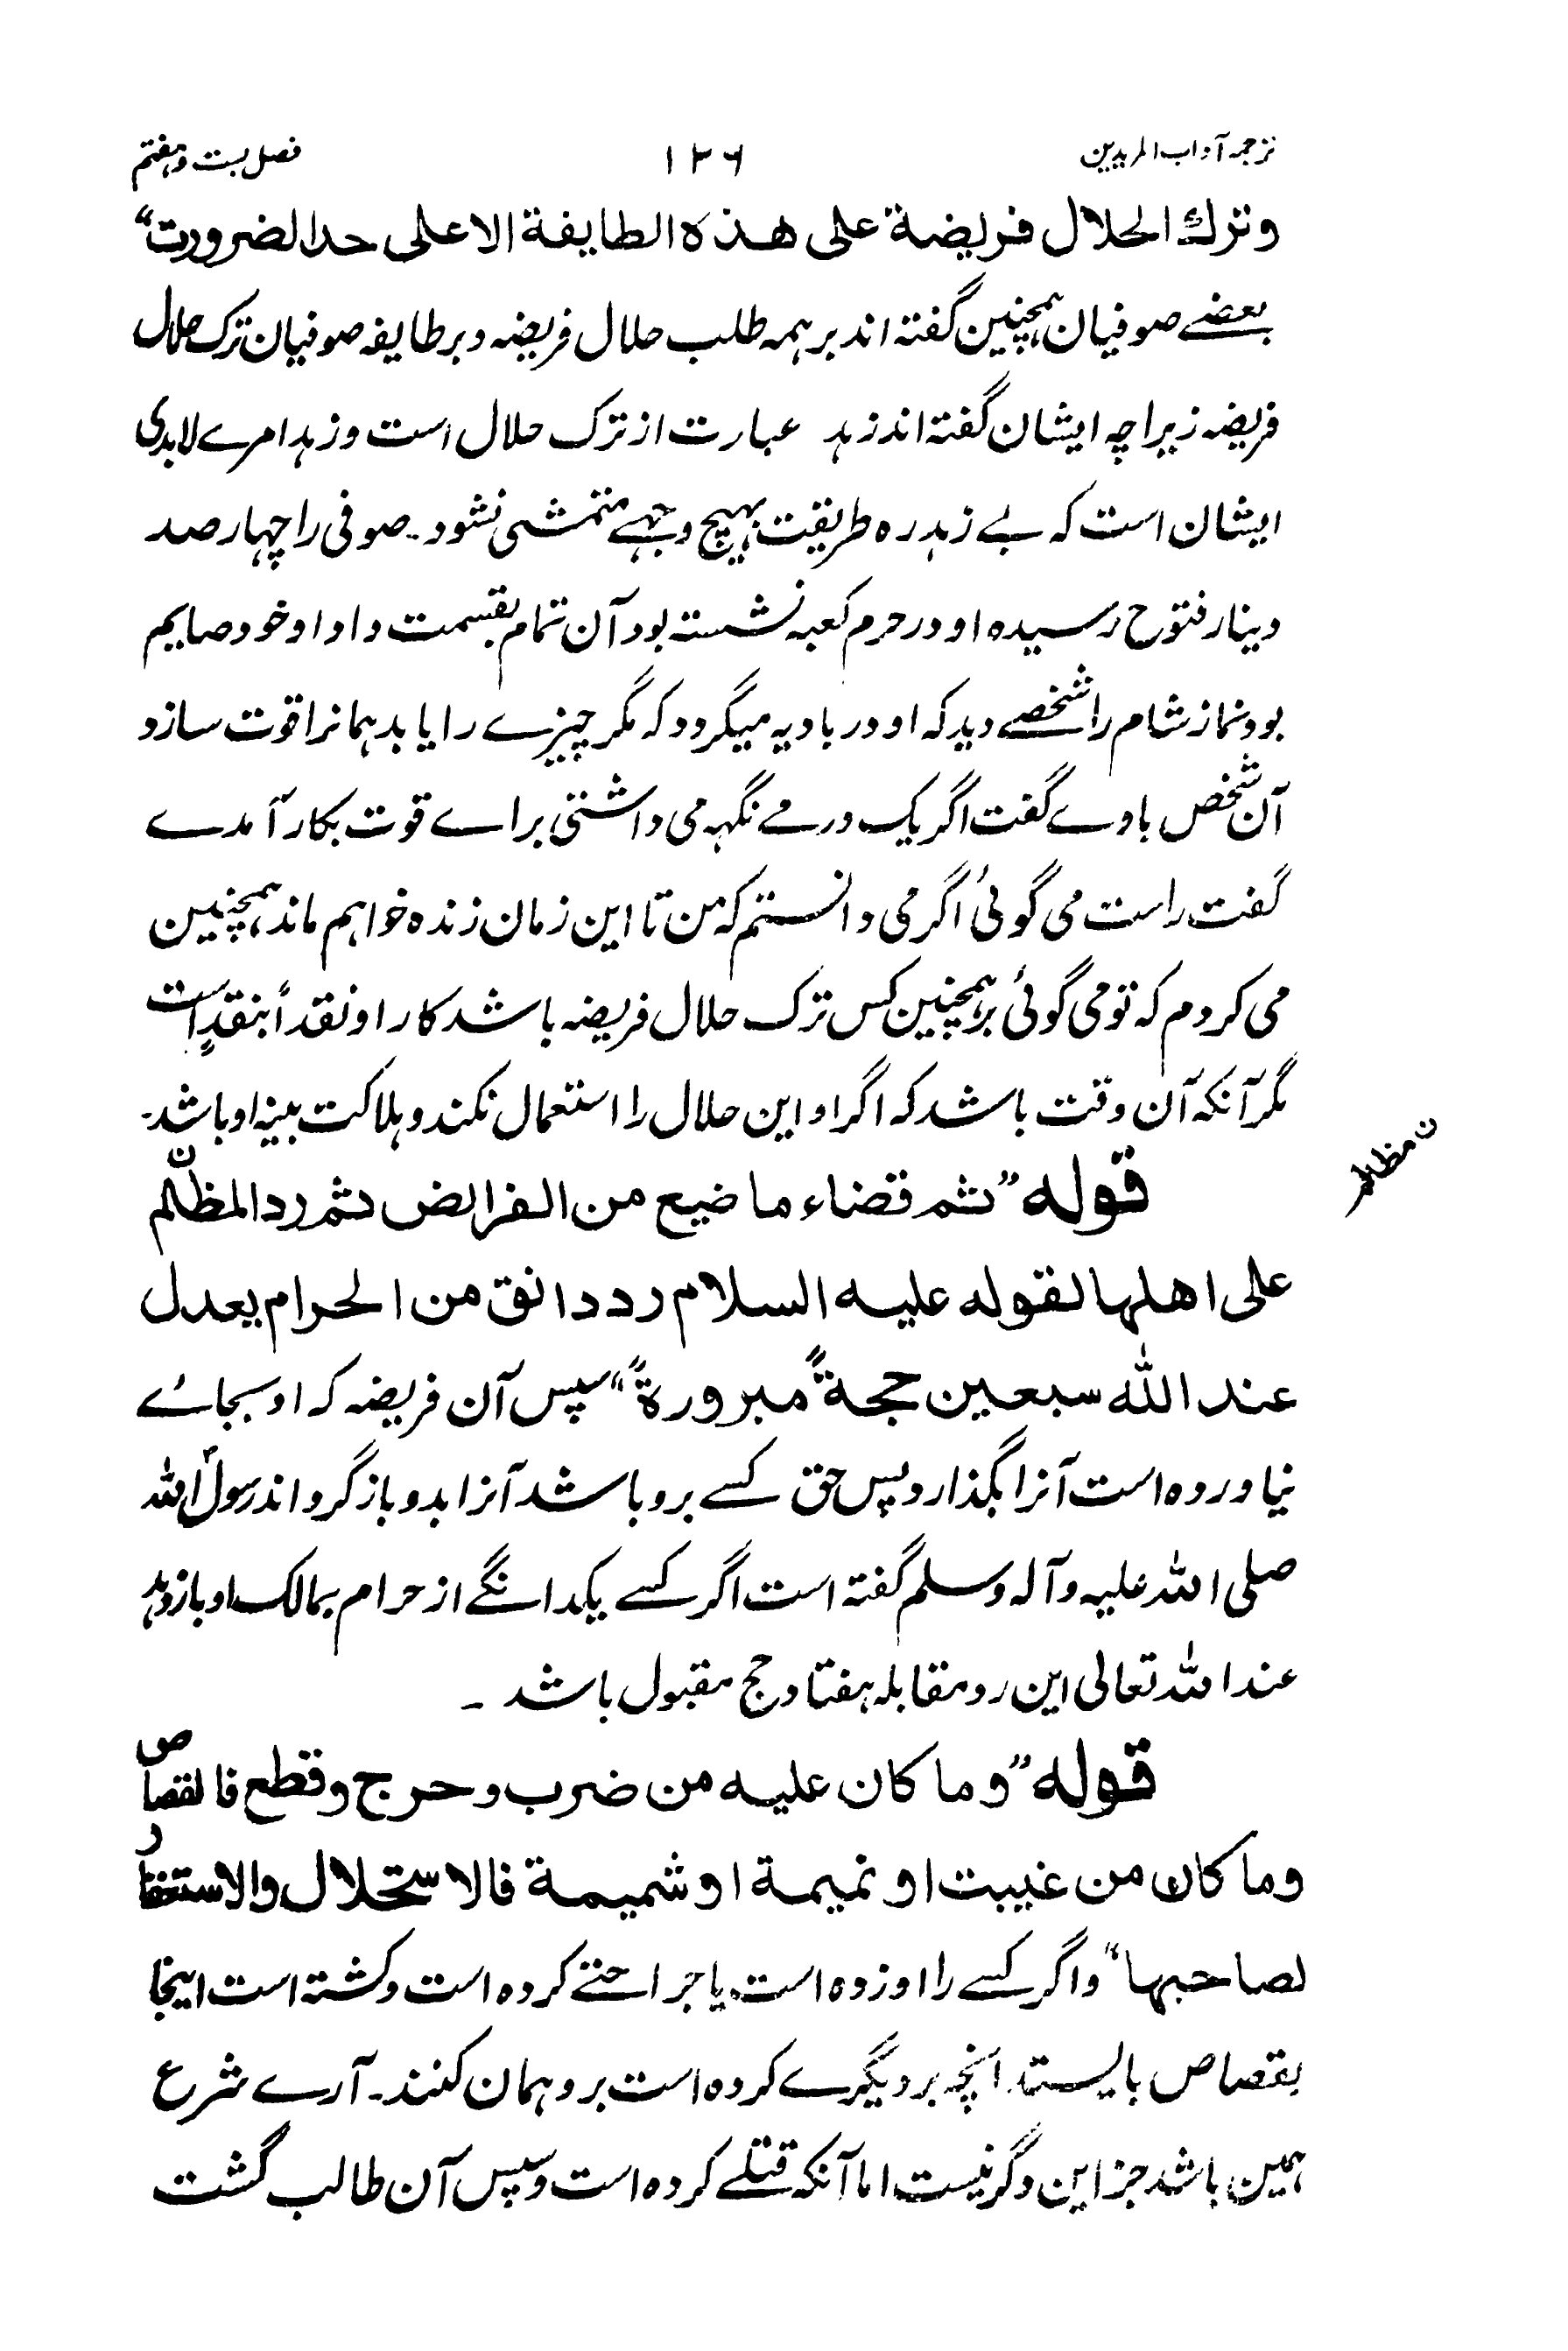 ترجمہ آداب المریدین ۱۲۶ فصل بست و ہفتم
وترك الحلال فريضة على هذه الطايفة الا على حد الضرورت“
بعضے صوفیان ہمچنین گفتہ اند بر ہمہ طلب حلال فریضہ و بر طایفہ صوفیان ترک حلال
فریضہ زیرا چہ ایشان گفتہ اند زہد عبارت از ترک حلال است و زہد امرے لابدی
ایشان است کہ بے زہد رہ طریقت بہیچ وجہے متمشی نشود۔ صوفی را چہار صد
دینار فتوح رسیدہ او در حرم کعبہ نشستہ بود آن تمام بقسمت داد او خود صایم
بود نماز شام را شخصے دید کہ او در بادیہ میگردد کہ مگر چیزے را یابد ہمانرا قوت سازد
آن شخص با وے گفت اگر یک درمے نگہہ می داشتی براے قوت بکار آمدے
گفت راست می گوئی اگر می دانستم کہ من تا این زمان زندہ خواہم ماند ہمچنین
می کردم کہ تو می گوئی بر ہمچنین کس ترک حلال فریضہ باشد کار او نقداً بنقدٍ است
مگر آنکہ آن وقت باشد کہ اگر او این حلال را استعمال نکند و ہلاکت بینہ او باشد۔
قوله ”ثم قضاء ما ضيع من الفرايض ثم رد المظلم ن
ن مظالم
على اهلها لقوله عليه السلام رد دانق من الحرام يعدل
عند الله سبعين حجةً مبرورةً“ سپس آن فریضہ کہ او بجائے
نیاوردہ است آنرا بگذارد پس حق کسے برو باشد آنرا بدو باز گرداند رسول اللہ
صلی اللہ علیہ وآلہ وسلم گفتہ است اگر کسے یکدانگے از حرام بمالک او باز دہد
عند اللہ تعالی این رد مقابلہ ہفتاد حج مقبول باشد ۔
قوله ”وما كان عليه من ضرب وحرج وقطع فالقصاص
وما كان من غيبت او نميمة او شميمة فالاستحلال والاستغفار
لصاحبها“ و اگر کسے را او زدہ است یا جراحتے کردہ است و کشتہ است اینجا
بقصاص بایستد انچہ بر دیگرے کردہ است برو ہمان کنند۔ آرے شرع
ہمین باشد جز این دگر نیست اما آنکہ قتلے کردہ است و سپس آن طالب گشت